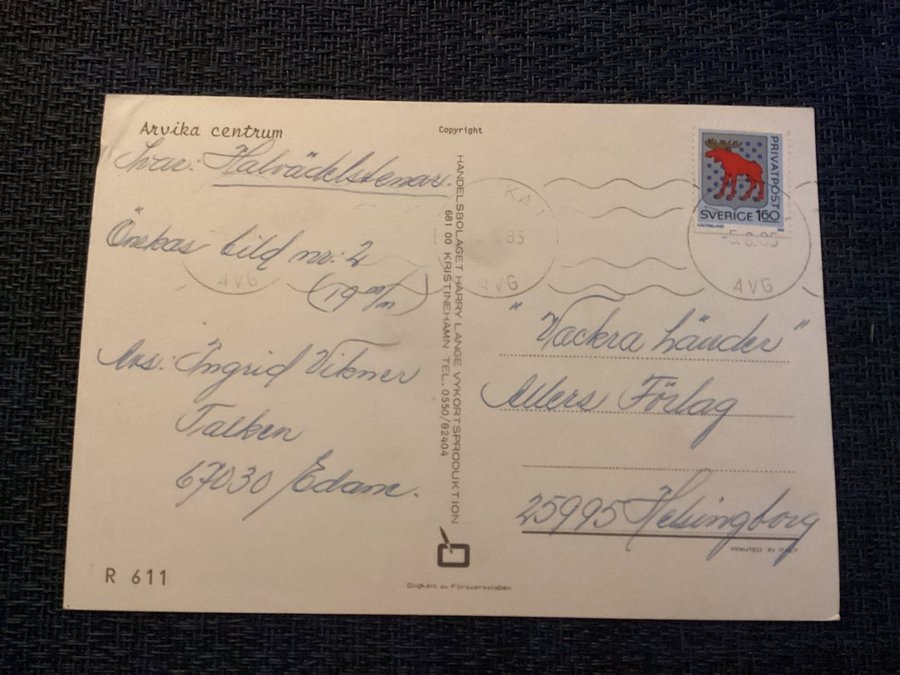 Arvika centrum
Copyright
Svar: Halvädelstenar.
Önskas bild nr: 2
(19 m/m)
Avs: Ingrid Vikner
Talken
67030 Edane.
R 611
HANDELSBOLAGET HARRY LANGE VYKORTSPRODUKTION
681 00 KRISTINEHAMN TEL. 0550/82404
Godkänt av Försvarsstaben
PRIVATPOST
SVERIGE 160
-5.8.85
AVG
KA
85
AVG
AVG
"Vackra händer"
Allers Förlag
25995 Helsingborg
PRINTED IN ITALY